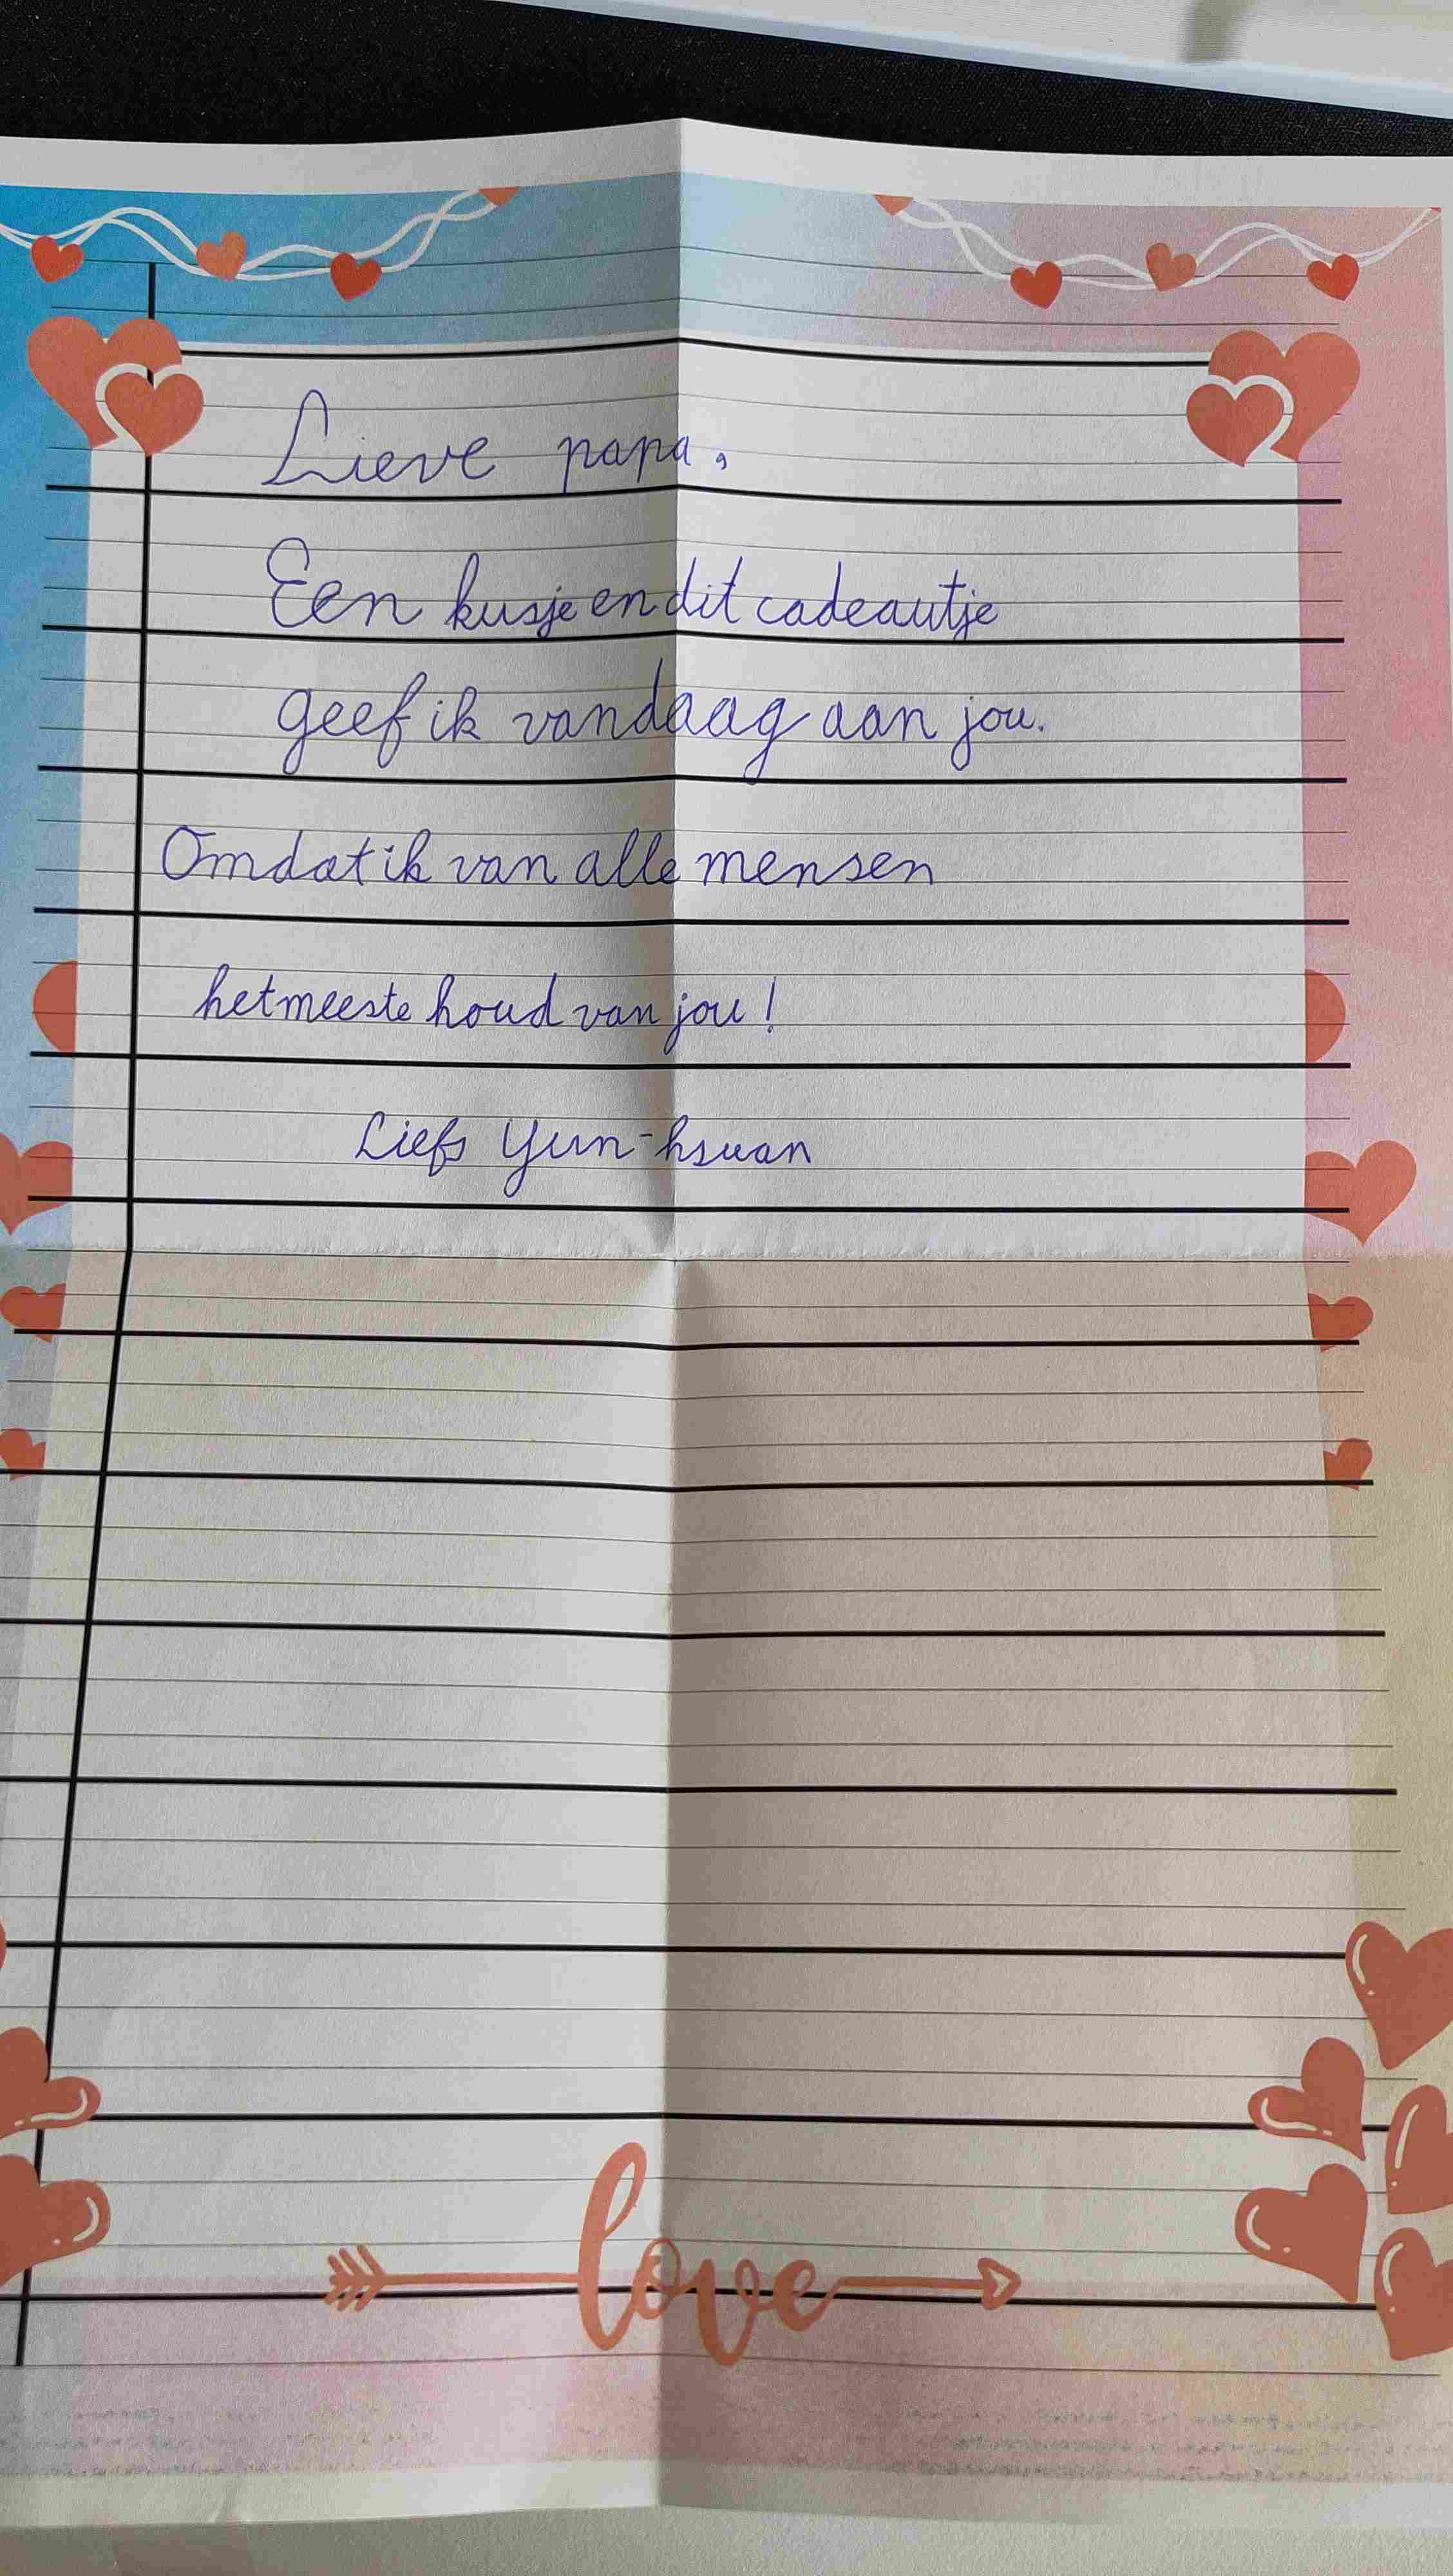 Lieve papa,
Een kusje en dit cadeautje
geef ik vandaag aan jou.
Omdat ik van alle mensen
het meeste houd van jou!
Liefs Yun-hsuan
love